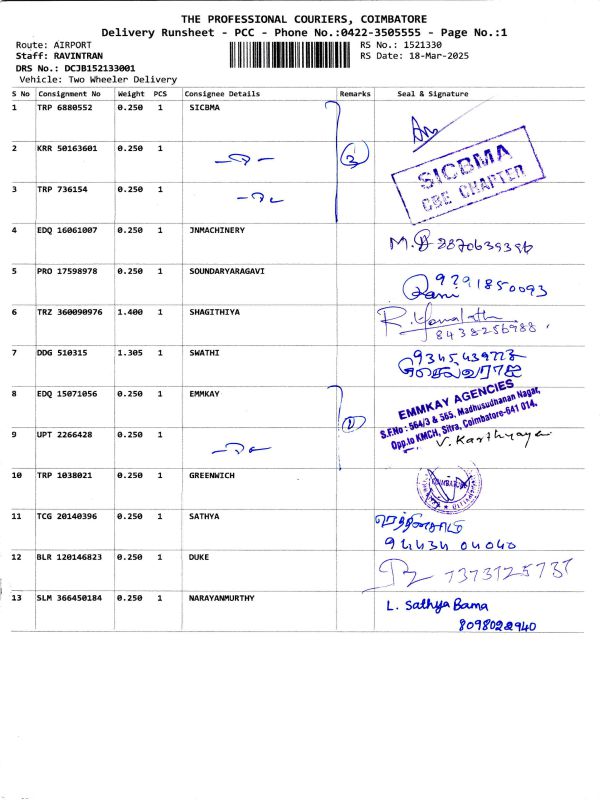 THE PROFESSIONAL COURIERS, COIMBATORE
Delivery Runsheet - PCC - Phone No.:0422-3505555 - Page No.:1
Route: AIRPORT RS No.: 1521330
Staff: RAVINTRAN RS Date: 18-Mar-2025
DRS No.: DCJB152133001
Vehicle: Two Wheeler Delivery
S No Consignment No Weight PCS Consignee Details Remarks Seal & Signature
1 TRP 6880552 0.250 1 SICBMA
2 KRR 50163601 0.250 1
SICBMA
CBE CHAPTER
3 TRP 736154 0.250 1
4 EDQ 16061007 0.250 1 JNMACHINERY
5 PRO 17598978 0.250 1 SOUNDARYARAGAVI
9791850093
Rani
6 TRZ 360090976 1.400 1 SHAGITHIYA
8438256988
7 DDG 510315 1.305 1 SWATHI
8 EDQ 15071056 0.250 1 EMMKAY
EMMKAY AGENCIES
S.F.No : 564/3 & 565, Madhusudhanan Nagar,
Opp.to KMCH, Sitra, Coimbatore-641 014.
9 UPT 2266428 0.250 1
10 TRP 1038021 0.250 1 GREENWICH
11 TCG 20140396 0.250 1 SATHYA
94434 04040
12 BLR 120146823 0.250 1 DUKE
7373725737
13 SLM 366450184 0.250 1 NARAYANMURTHY
L. Sathya Bama
8098022940